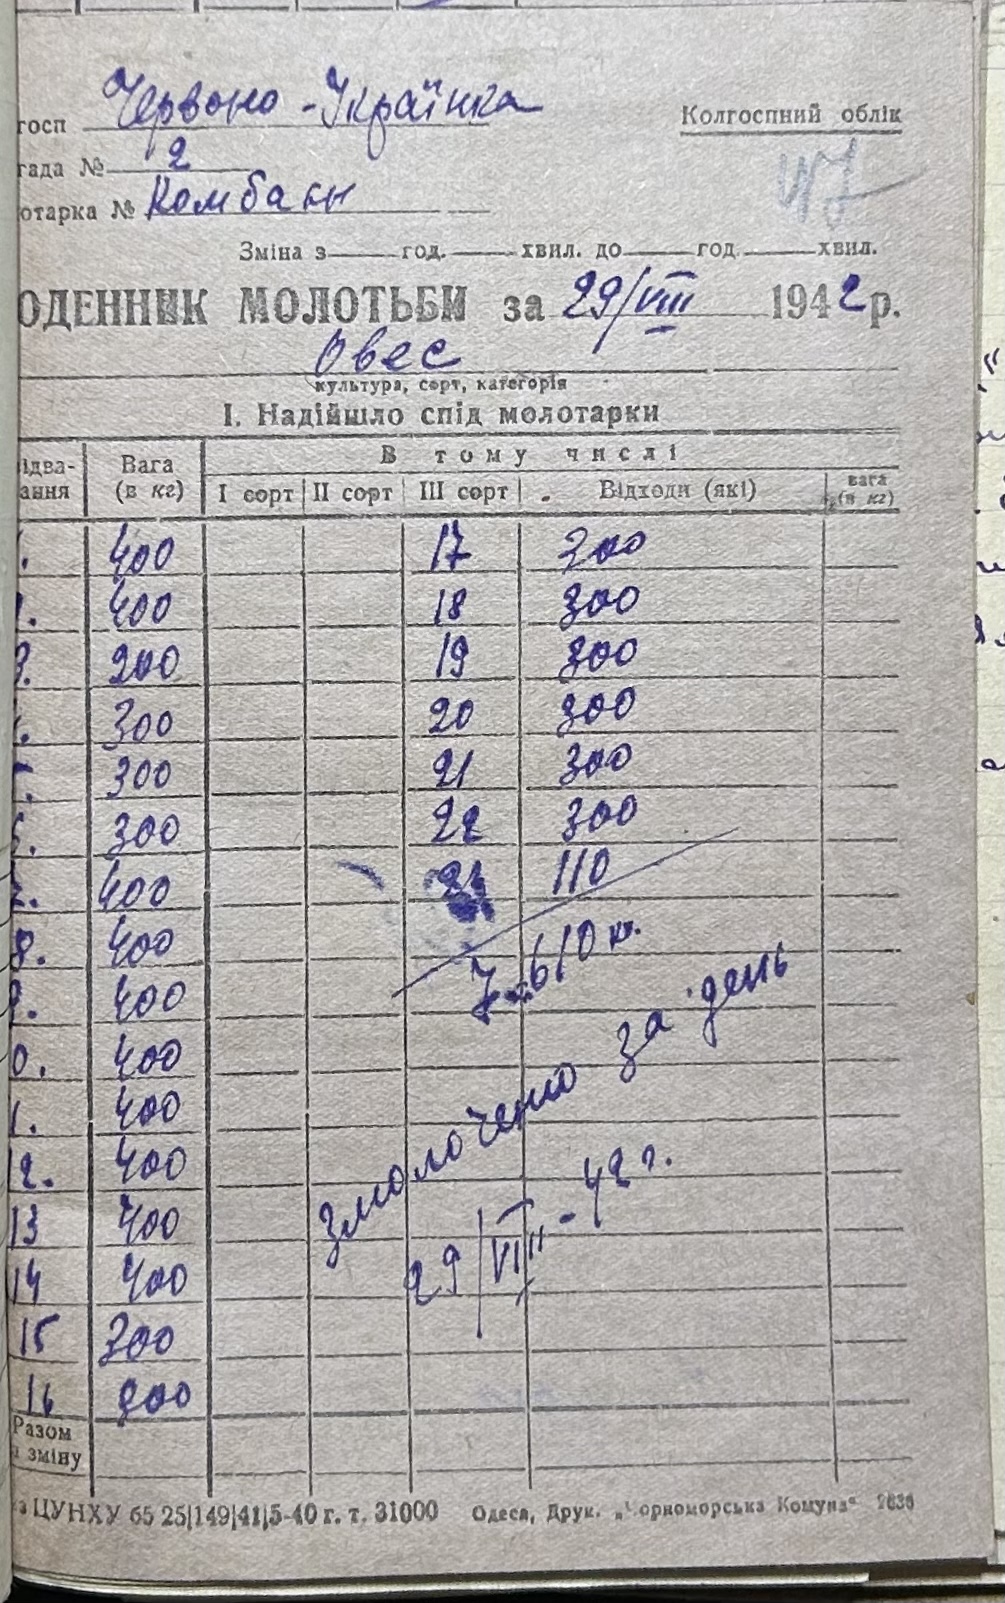 госп Червоно-Українка
Колгоспний облік
гада № 2
47
отарка № Комбайн
Зміна з год. хвил. до год. хвил.
ОДЕННИК МОЛОТЬБИ за 29/VIII 1942 р.
Овес
культура, сорт, категорія
І. Надійшло спід молотарки
ідва-
ання Вага
(в кг) В тому числі
І сорт ІІ сорт ІІІ сорт Відходи (які) вага
(в кг)
1. 400 17 300
2. 400 18 300
3. 200 19 300
4. 300 20 300
5. 300 21 300
6. 300 22 300
7. 400 110
8. 400
7.610 кг.
9. 400
0. 400
1. 400
12. 400
13 400
14 400
15 300
16 300
змолочено за день
29/VIII-42 г.
Разом
зміну
ЦУНХУ 65 25|149|41|5-40 г. т. 31000 Одеса, Друк. „Чорноморська Комуна“ 2636